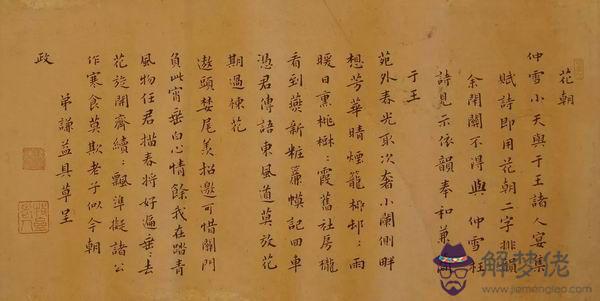 花朝
仲雪小天與于王諸人宴集
賦詩即用花朝二字排韻
余閉關不得與 仲雪枉
詩見示依韻奉和兼
于王
苑外春光取次奢小闌側畔
想芳華晴煙籠柳邨〻雨
暖日熏桃樹〻霞舊社房櫳
看到燕新粧簾幙記回車
憑君傳語東風道莫放花
期過楝花
遨頭婪尾美招邀可惜關門
負此宵垂白心情餘我在踏青
風物任君描春將好遍垂〻去
花旋開齊續〻飄準擬諸公
作寒食莫欺老子似今朝
弟謙益具草呈
政
解梦佬